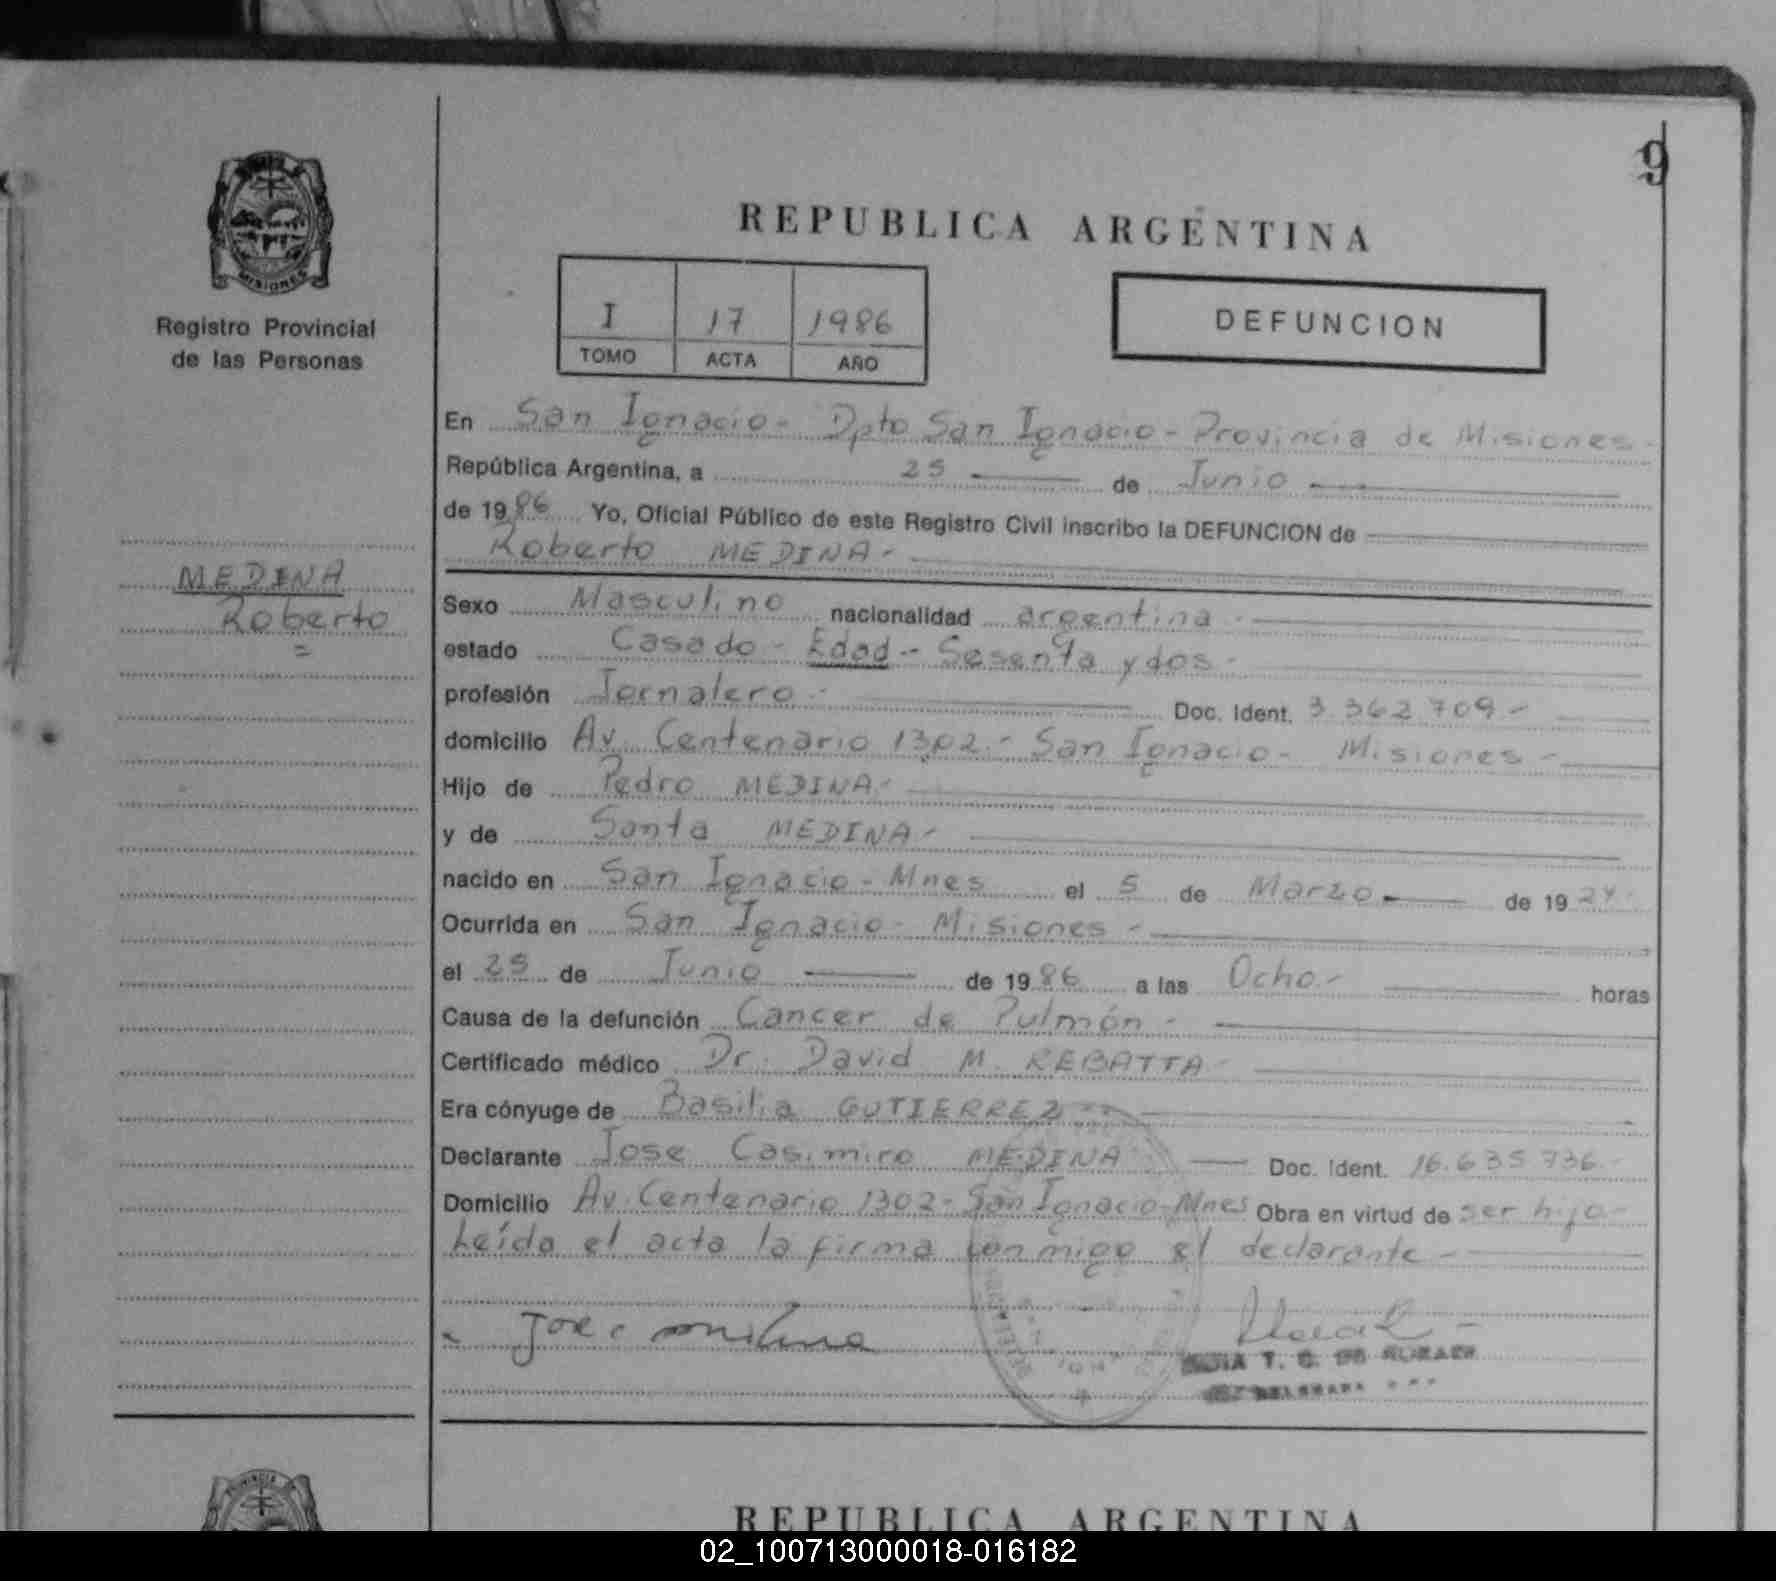 9
REPUBLICA ARGENTINA
MISIONES
Registro Provincial
de las Personas
I 17 1986
TOMO ACTA AÑO
DEFUNCION
MEDINA
Roberto
En San Ignacio - Dpto San Ignacio - Provincia de Misiones -
República Argentina, a 25 de Junio
de 1986 Yo, Oficial Público de este Registro Civil inscribo la DEFUNCION de
Roberto MEDINA -
Sexo Masculino nacionalidad argentina -
estado Casado - Edad - Sesenta y dos -
profesión Jornalero - Doc. Ident. 3.362.709 -
domicilio Av. Centenario 1302 - San Ignacio - Misiones -
Hijo de Pedro MEDINA -
y de Santa MEDINA -
nacido en San Ignacio - Mnes el 5 de Marzo de 1924
Ocurrida en San Ignacio - Misiones -
el 25 de Junio de 1986 a las Ocho - horas
Causa de la defunción Cancer de Pulmón -
Certificado médico Dr. David M. REBATTA -
Era cónyuge de Basilia GUTIERREZ -
Declarante Jose Casimiro MEDINA Doc. Ident. 16.635.736 -
Domicilio Av. Centenario 1302 - San Ignacio - Mnes Obra en virtud de ser hijo -
Leída el acta la firma conmigo el declarante -
Jose
REPUBLICA ARGENTINA
02_100713000018-016182